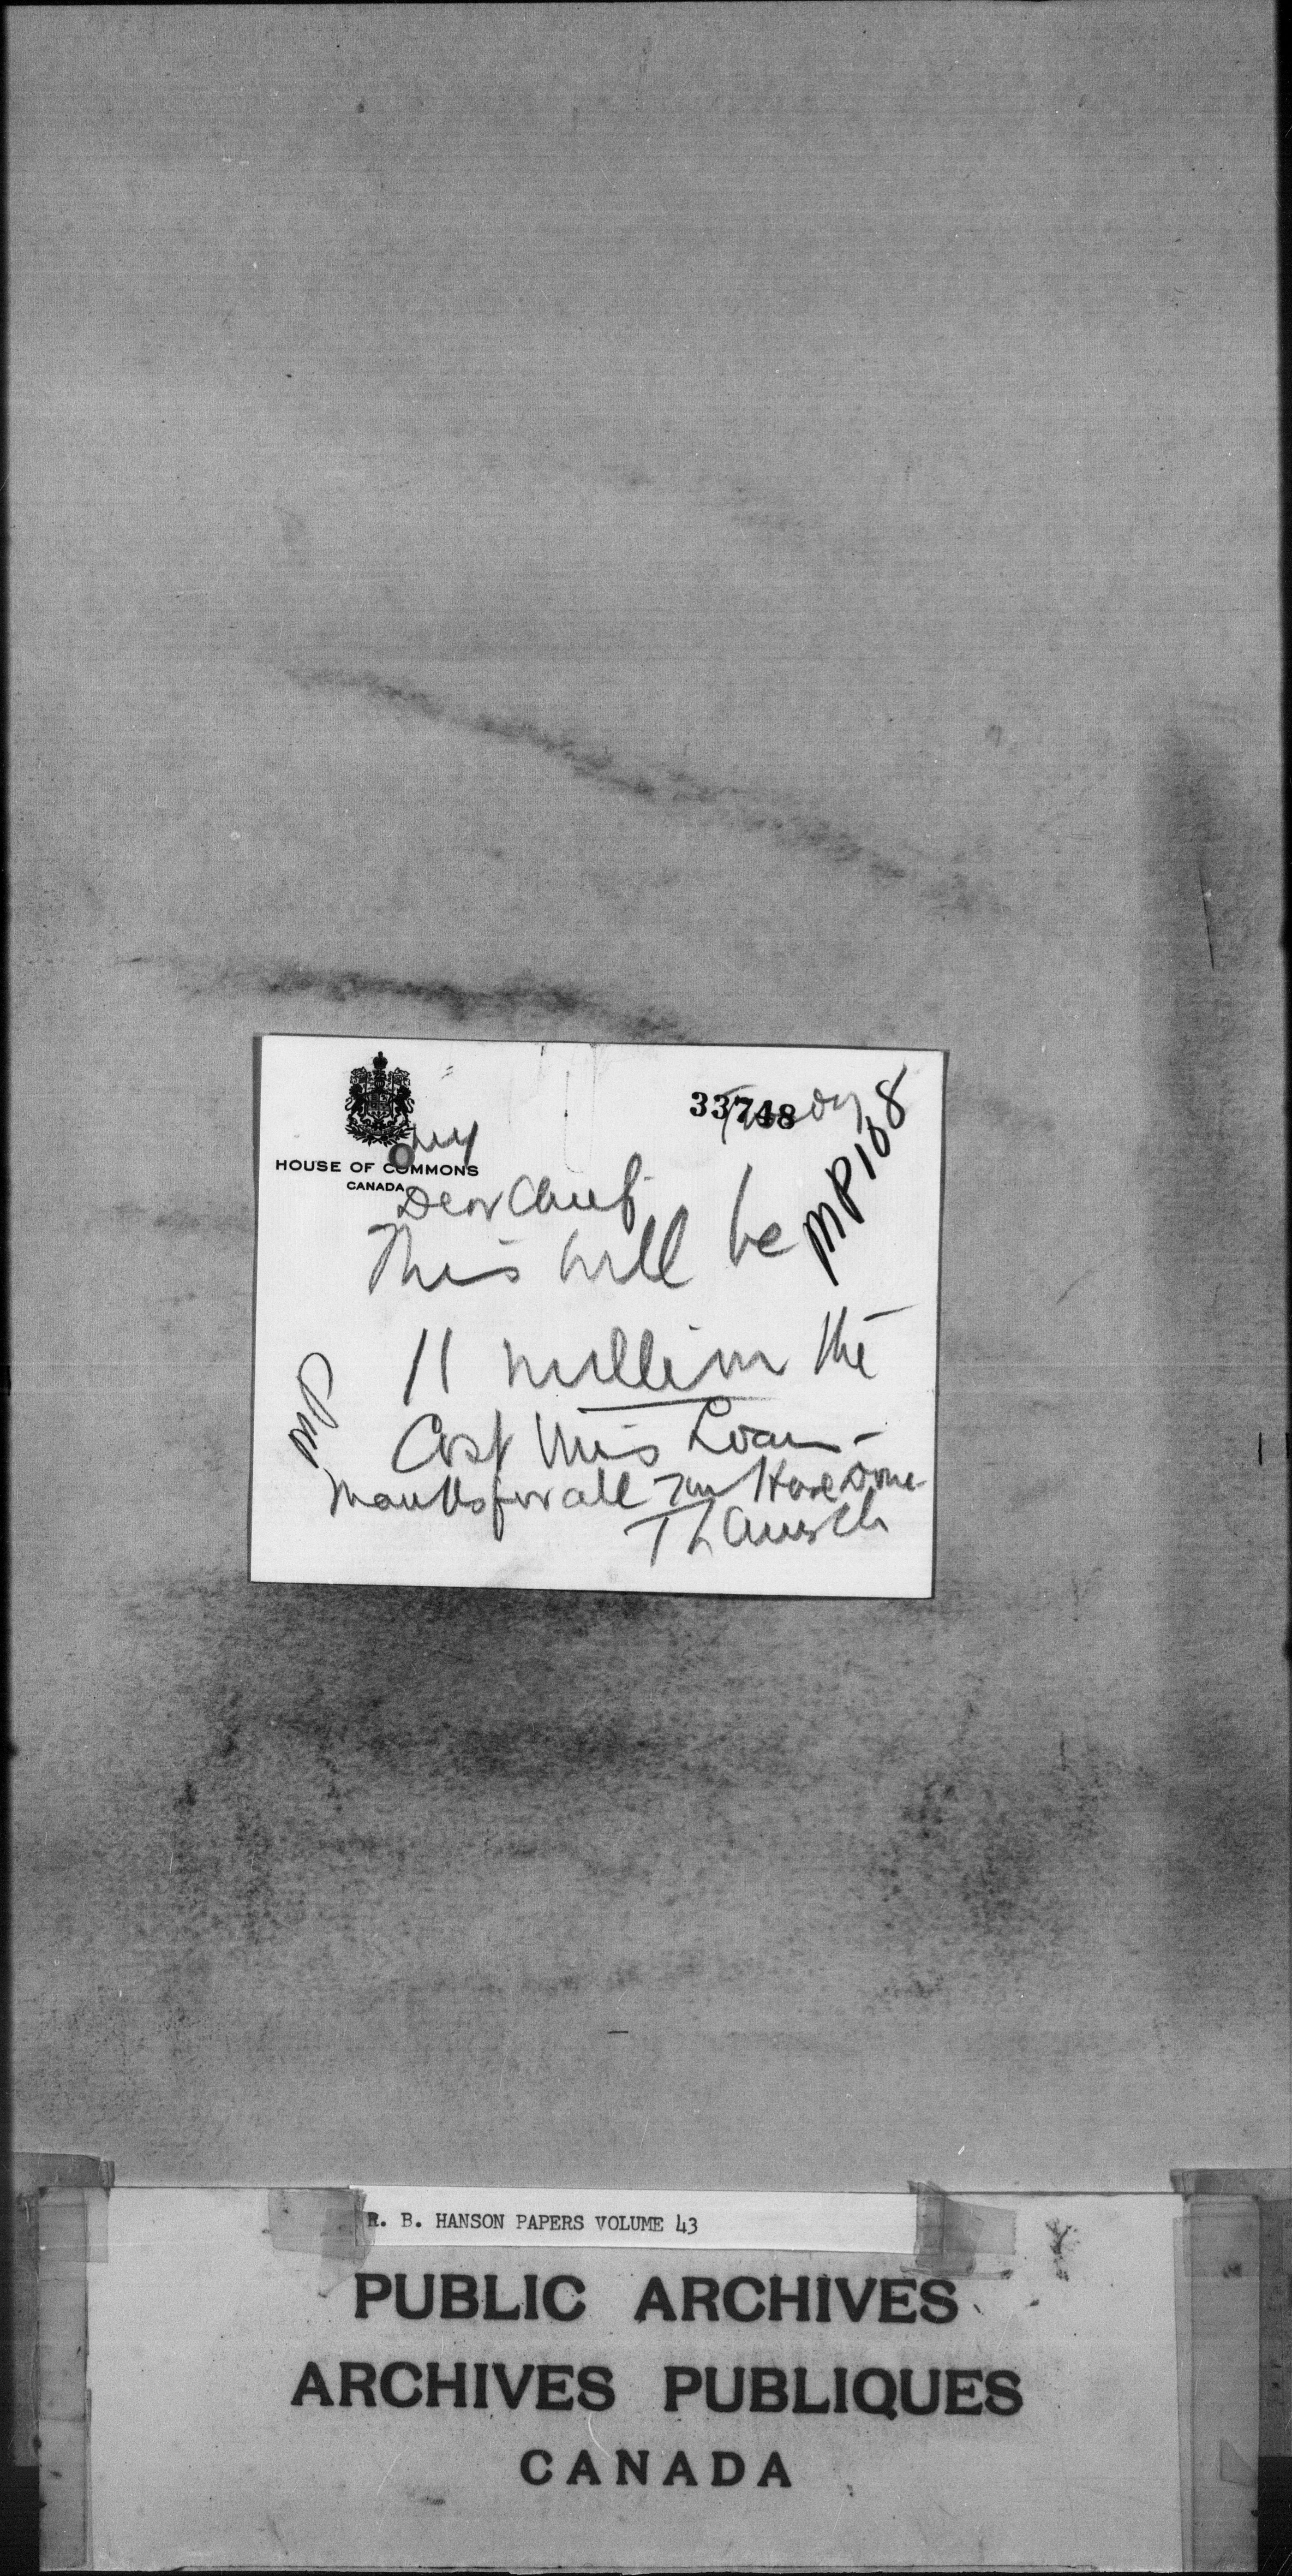 33748
MP108
My
HOUSE OF COMMONS
CANADA
Dear Chief
This will be
11 million the
Cost this Loan -
MP
Thanks for all you Have Done
T L Church
R. B. HANSON PAPERS VOLUME 43
PUBLIC ARCHIVES
ARCHIVES PUBLIQUES
CANADA